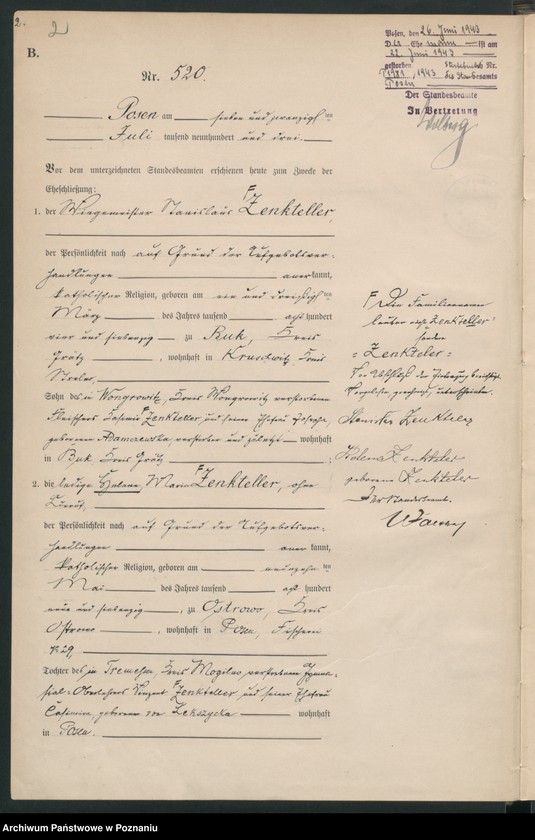 2.
2
B.
Nr. 520.
Posen, den 26. Juni 1943
Der Ehemann ist am
22. Juni 1943
gestorben Sterbebuch Nr.
1981, 1943 des Standesamts
Posen
Der Standesbeamte
In Vertretung
Posen am sieben und zwanzigsten
Juli tausend neunhundert und drei.
Vor dem unterzeichneten Standesbeamten erschienen heute zum Zwecke der
Eheschließung:
1. der Wiegemeister Stanislaus Zenkteller,
der Persönlichkeit nach auf Grund der Aufgebotsver-
handlungen anerkannt,
katholischer Religion, geboren am ein und dreißigsten
März des Jahres tausend acht hundert
vier und siebenzig zu Buk, Kreis
Grätz, wohnhaft in Kruschwitz, Kreis
Strelno,
Sohn des in Wongrowitz, Kreis Wongrowitz verstorbenen
Fleischers Zenkteller, und seiner Ehefrau Josepha,
geborenen Adamczewska, wohnhaft
in Buk, Kreis Grätz
2. die ledige Helene Maria Zenkteller, ohne
Beruf,
der Persönlichkeit nach auf Grund der Aufgebotsver-
handlungen anerkannt,
katholischer Religion, geboren am neunzehnten
Mai des Jahres tausend acht hundert
neun und siebenzig, zu Ostrowo, Kreis
Ostrowo, wohnhaft in Posen, Fischerei
№ 29,
Tochter des in Tremessen, Kreis Mogilno verstorbenen Gymna-
sial-Oberlehrers Vinzent Zenkteller und seiner Ehefrau
Casimira, geborenen von wohnhaft
in Posen.
Der Familienname
lautet nicht "Zenkteller"
sondern
"Zenkteler"
Vorgelesen, genehmigt, unterschrieben.
Stanislas Zenkteler
Helena Zenkteler
geborene Zenkteler
Der Standesbeamte.
Archiwum Państwowe w Poznaniu